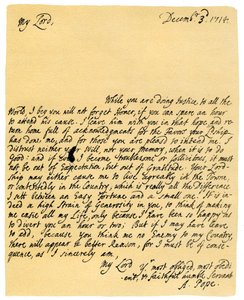 Decemb.r 3.d 1714.
My Lord,
While you are doing Justice to all the
World, I beg you will not forget Homer, if you can spare an hour
to attend his cause. I leave him with you in that hope, and re-
turn home full of acknowledgments for the Favors your Lordship
has done me, and for those you are pleased to intend me. I
distrust neither your Will, nor your Memory, when it is to do
Good: and if ever I become troublesome or sollicitous, it must
not be out of Expectation, but out of Gratitude. Your Lord-
ship may either cause me to live agreeably in the Towne,
or contentedly in the Country, which is really all the Difference
I sett between an Easy Fortune and a small one. It is in-
deed a high strain of Generosity in you, to think of making
me easie all my Life, only because I have been so happy as
to divert you an hour or two: But if I may have leave
to add, because you think me no Enemy to my Country,
there will appear a better Reason, for I must be of conse-
quence, as I sincerely am,
My Lord, y.r most obliged, most obedi-
ent, & faithfull humble Servant
A. Pope.